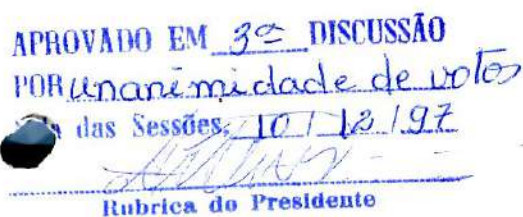 APROVADO EM 3ª DISCUSSÃO
POR unanimidade de votos
das Sessões, 10 / 12 / 97
Rubrica do Presidente